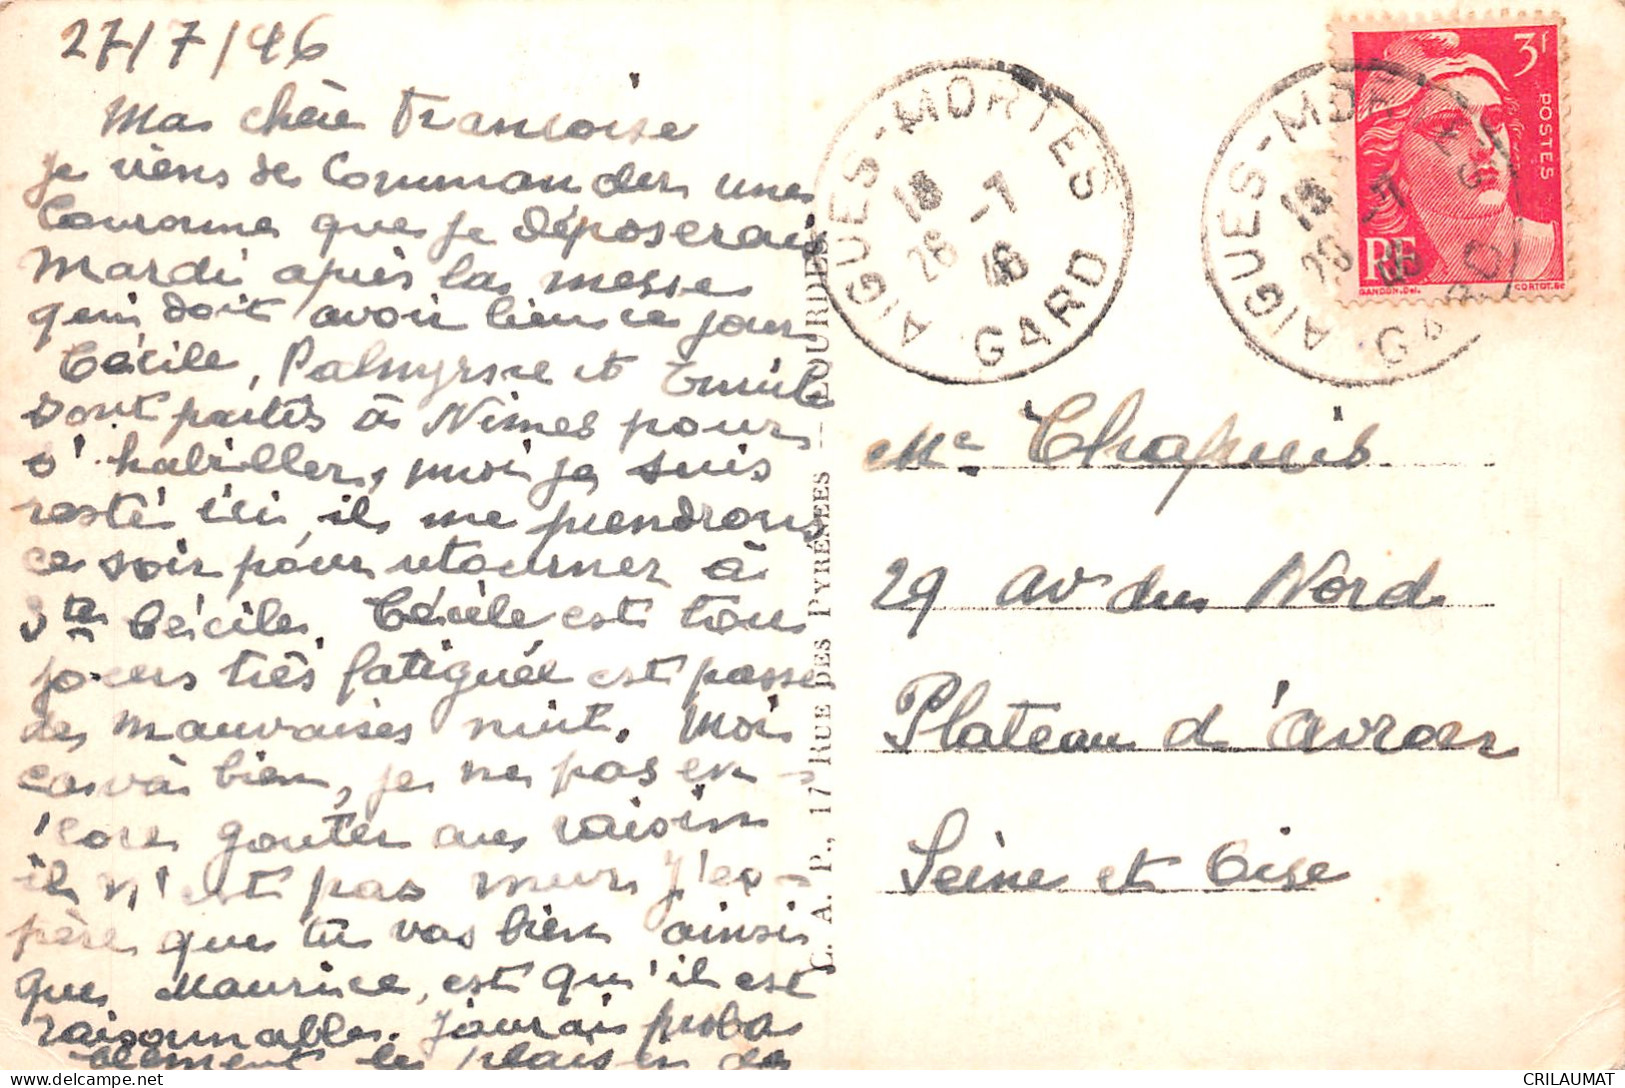 27/7/46
Ma chère Françoise
je viens de commander une
Couronne que je déposerais
Mardi après la messe
qui doit avoir lieu ce jour
Cécile, Palmyre et Emile
sont partis à Nimes pour
s'habiller, moi je suis
resté ici il me prendrons
ce soir pour retourner à
Ste Cécile. Cécile est tou
jours très fatiguée est passe
des mauvaises nuit. Moi
ca va bien, je ne pas en-
core gouter au raisin
il n'est pas mur. J'es-
père que tu vas bien ainsi
que Maurice, est qu'il est
raisonnable. J'aurais proba
blement le plaisir de
C. A. P., 17 RUE DES PYRÉNÉES — LOURDES
AIGUES-MORTES
18
28 -7
46
GARD
AIGUES-MORTES
18
28 -7
46
GARD
3F
POSTES
RF
GANDON.Del.
CORTOT.Sc
Me Chapuis
29 av du Nord
Plateau d'avron
Seine et Oise
CRILAUMAT